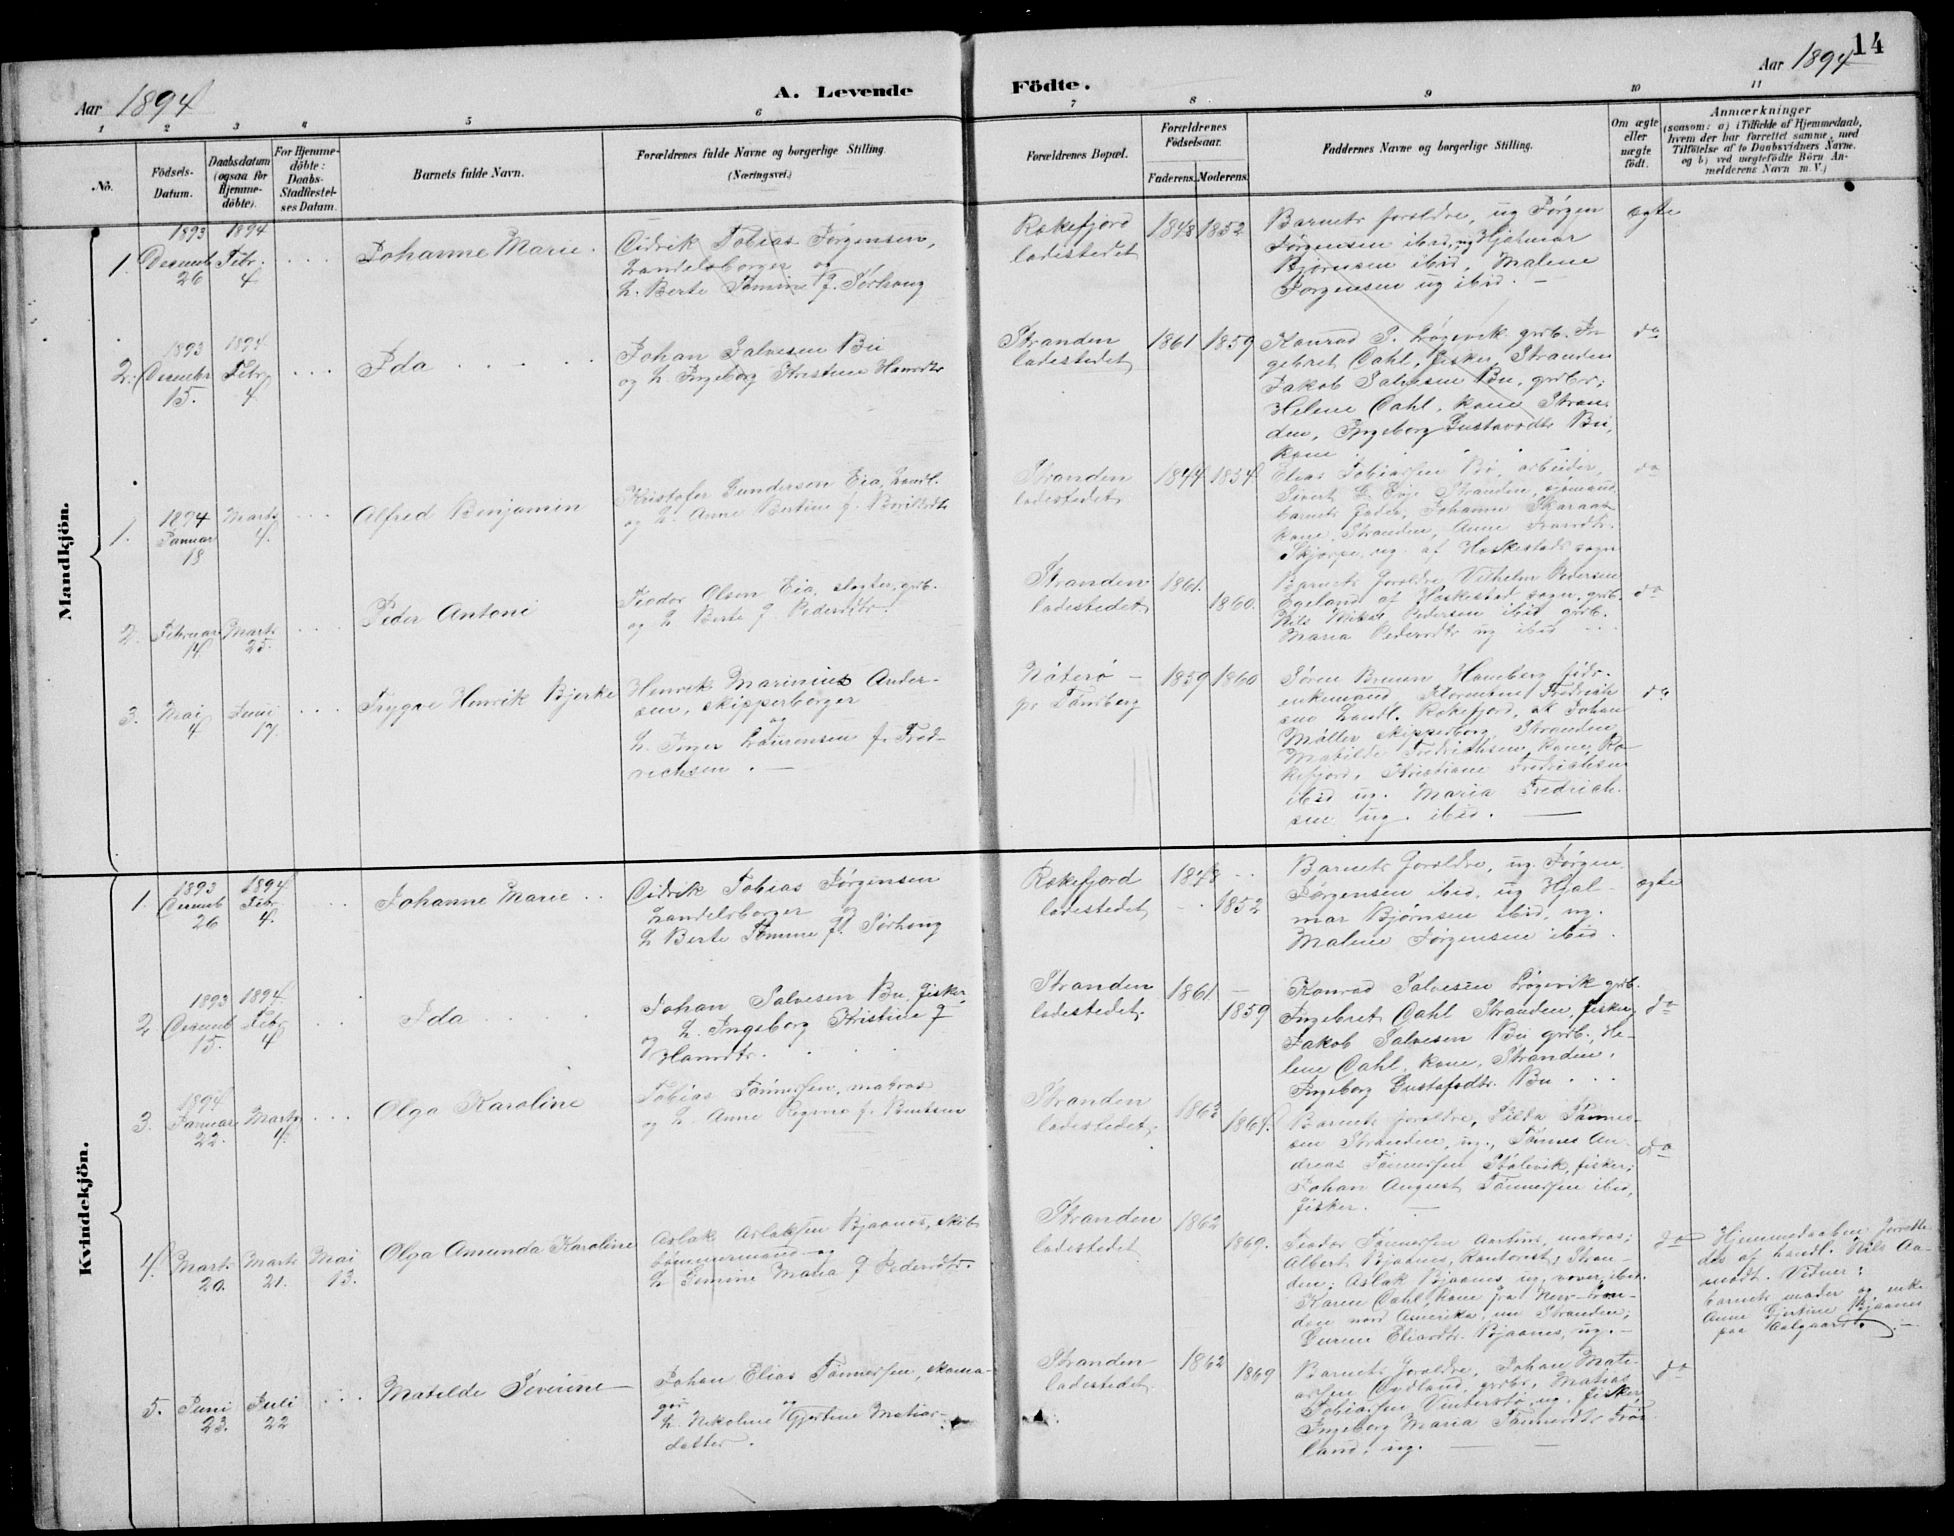 14
Aar 1894
A. Levende
Födte.
Aar 1894
1 2 3 4 5 6 7 8 9 10 11
No.
Födsels-Datum.
Daabsdatum (ogsaa for Hjemme-döbte).
For Hjemme-döbte: Daabs-Stadfæstel-ses Datum.
Barnets fulde Navn.
Forældrenes fulde Navne og borgerlige Stilling
(Næringsvei.)
Forældrenes Bopæl.
Forældrenes Födselsaar.
Faderens.
Moderens.
Faddernes Navne og borgerlige Stilling.
Om ægte eller uægte födt.
Anmærkninger
(saasom: a) i Tilfælde af Hjemmedaab,
hvem der har forrettet samme, med
Tilföielse af to Daabsvidners Navne,
og b) ved uægtefödte Börn An-
melderens Navn m. V.)
Mandkjön.
1. 1893 Decemb 26
1894 Febr. 4
Johanne Marie
Cidrik Tobias Jørgensen,
Handelsborger og
H. Berte Tomine f. Sørhaug
Rækefjord
ladestedet
1848 1852
Barnets foreldre, ug Jørgen
Jørgensen ibid, ug Hjalmar
Bjørnsen ibid, Malene
Jørgensen ug ibid. —
ægte
2. 1893 Decembr 15.
1894 Febr 4
Ida
Johan Salvesen Bu
og H. Ingeborg Kristine Hansdtr
Stranden
ladestedet
1861 1859
Konrad S. Løgevik grb. In-
gebret Dahl, fisker, Stranden
Jakob Salvesen Bu, grbr;
Helene Dahl, kone Stran-
den, Ingeborg Gustavsdtr Bu,
kone
do
1. 1894 Januar 18
Marts 4.
Alfred Benjamin
Kristofer Gunderson Eia, Handl.
og H. Anne Bertine f.
Stranden
ladestedet
1844 1854
Elias Tobiassen Bø, arbeider,
Sivert Eie Stranden, sjømand
barnets fader, Johanne Skaraas
kone Stranden, Anne
ug. af Heskestads sogn
do
2. Februar 14
Marts 25.
Peder Antoni
Teodor Olsen Eia, grb.
og H Berte f. Pedersdtr.
Stranden
ladestedet
1861. 1860.
Barnets foreldre, Vilhelm Pedersen
Egeland af Heskestad sogn, grb.
Nils Mikal Pedersen ibid grb.
Maria Pedersdtr ug ibid
do
3. Mai 4
Juni 17
Trygve Henrik Bjerke
Henrik Marinius Ander-
sen, skipperborger
og
H. Inger Laurensen f. Fred-
richsen. —
Nøterø —
pr Tønsberg
1859 1860
Søren Bruun Hamberg
enkemand, Florentine Fredrich
sen Handl. Rækefjord, Johan
Møller skipperborg, Stranden
Matilde Fredrichsen, kone, Ræ-
kefjord, Kristiane Fredrichsen
ibid ug. Maria Fredrich-
sen ug. ibid. —
do
Kvindekjön.
1. 1893 Decemb 26
1894 Febr 4.
Johanne Marie
Cidrik Tobias Jørgensen
Handelsborger og
H Berte Tomine f. Sørhaug
Rækefjord
ladestedet
1848 1852
Barnets foreldre, ug. Jørgen
Jørgensen ibid, ug Hjal-
mar Bjørnsen ibid, ug.
Malene Jørgensen ibid.
ægte
2. 1893 Decemb 15.
1894 Febr 4
Ida
Johan Salvesen Bu, fisker,
og H. Ingeborg Kristine f
Hansdtr.
Stranden
ladestedet.
1861. 1859
Konrad Salvesen Løgevik grb.
Ingebret Dahl Stranden, fisker,
Jakob Salvesen Bu grb., He-
lene Dahl, kone, Stranden.
Ingeborg Gustafsdtr. Bu
do
3. 1894 Januar 22.
Marts 4.
Olga Karoline
Tobias Tønnessen, matros
og H. Anne Regine f. Knutsen
Stranden
ladestedet,
1862 1864.
Barnets foreldre, Tilda Tønnes-
sen Stranden, ug., Tønnes An-
dreas Tønnessen Stølevik, fisker;
Johan August Tønnessen ibid,
fisker. —
do
4. Marts 20.
Marts 21.
Mai 13.
Olga Amunda Karoline
Aslak Aslaksen Bjaanes, skibs
tømmermand og
H Semine Maria f Pedersdtr.
Stranden
ladestedet
1862 1869.
Teodor Tønnessen matros;
Albert Bjaanes, Kontorist, Stran-
den; Aslak Bjaanes ug, vøver, ibid.
Karen Dahl, kone fra New-Lon-
don nord Amerika, nu Stranden;
Gurine Eliasdtr. Bjaanes, ug. —
do
Hjemmedaaben forrette-
des af handl. Nils Aa-
modt. Vidner:
barnets moder og enke
Anne Gjertine Bjaanes
paa Aalgaard. —
5. Juni 23.
Juli 22
Matilde Severine
Johan Elias Tønnessen, skoma-
ger og
H. Nikoline Gjertine Matias-
datter.
Stranden
ladestedet
1862 1869
Barnets foreldre, Johan Mati-
assen Øvdland, grbr, Matias
Tobiassen Vinterstø, ug. fisker,
Ingeborg Maria Tønnesdtr Frø-
land, ug. —
do